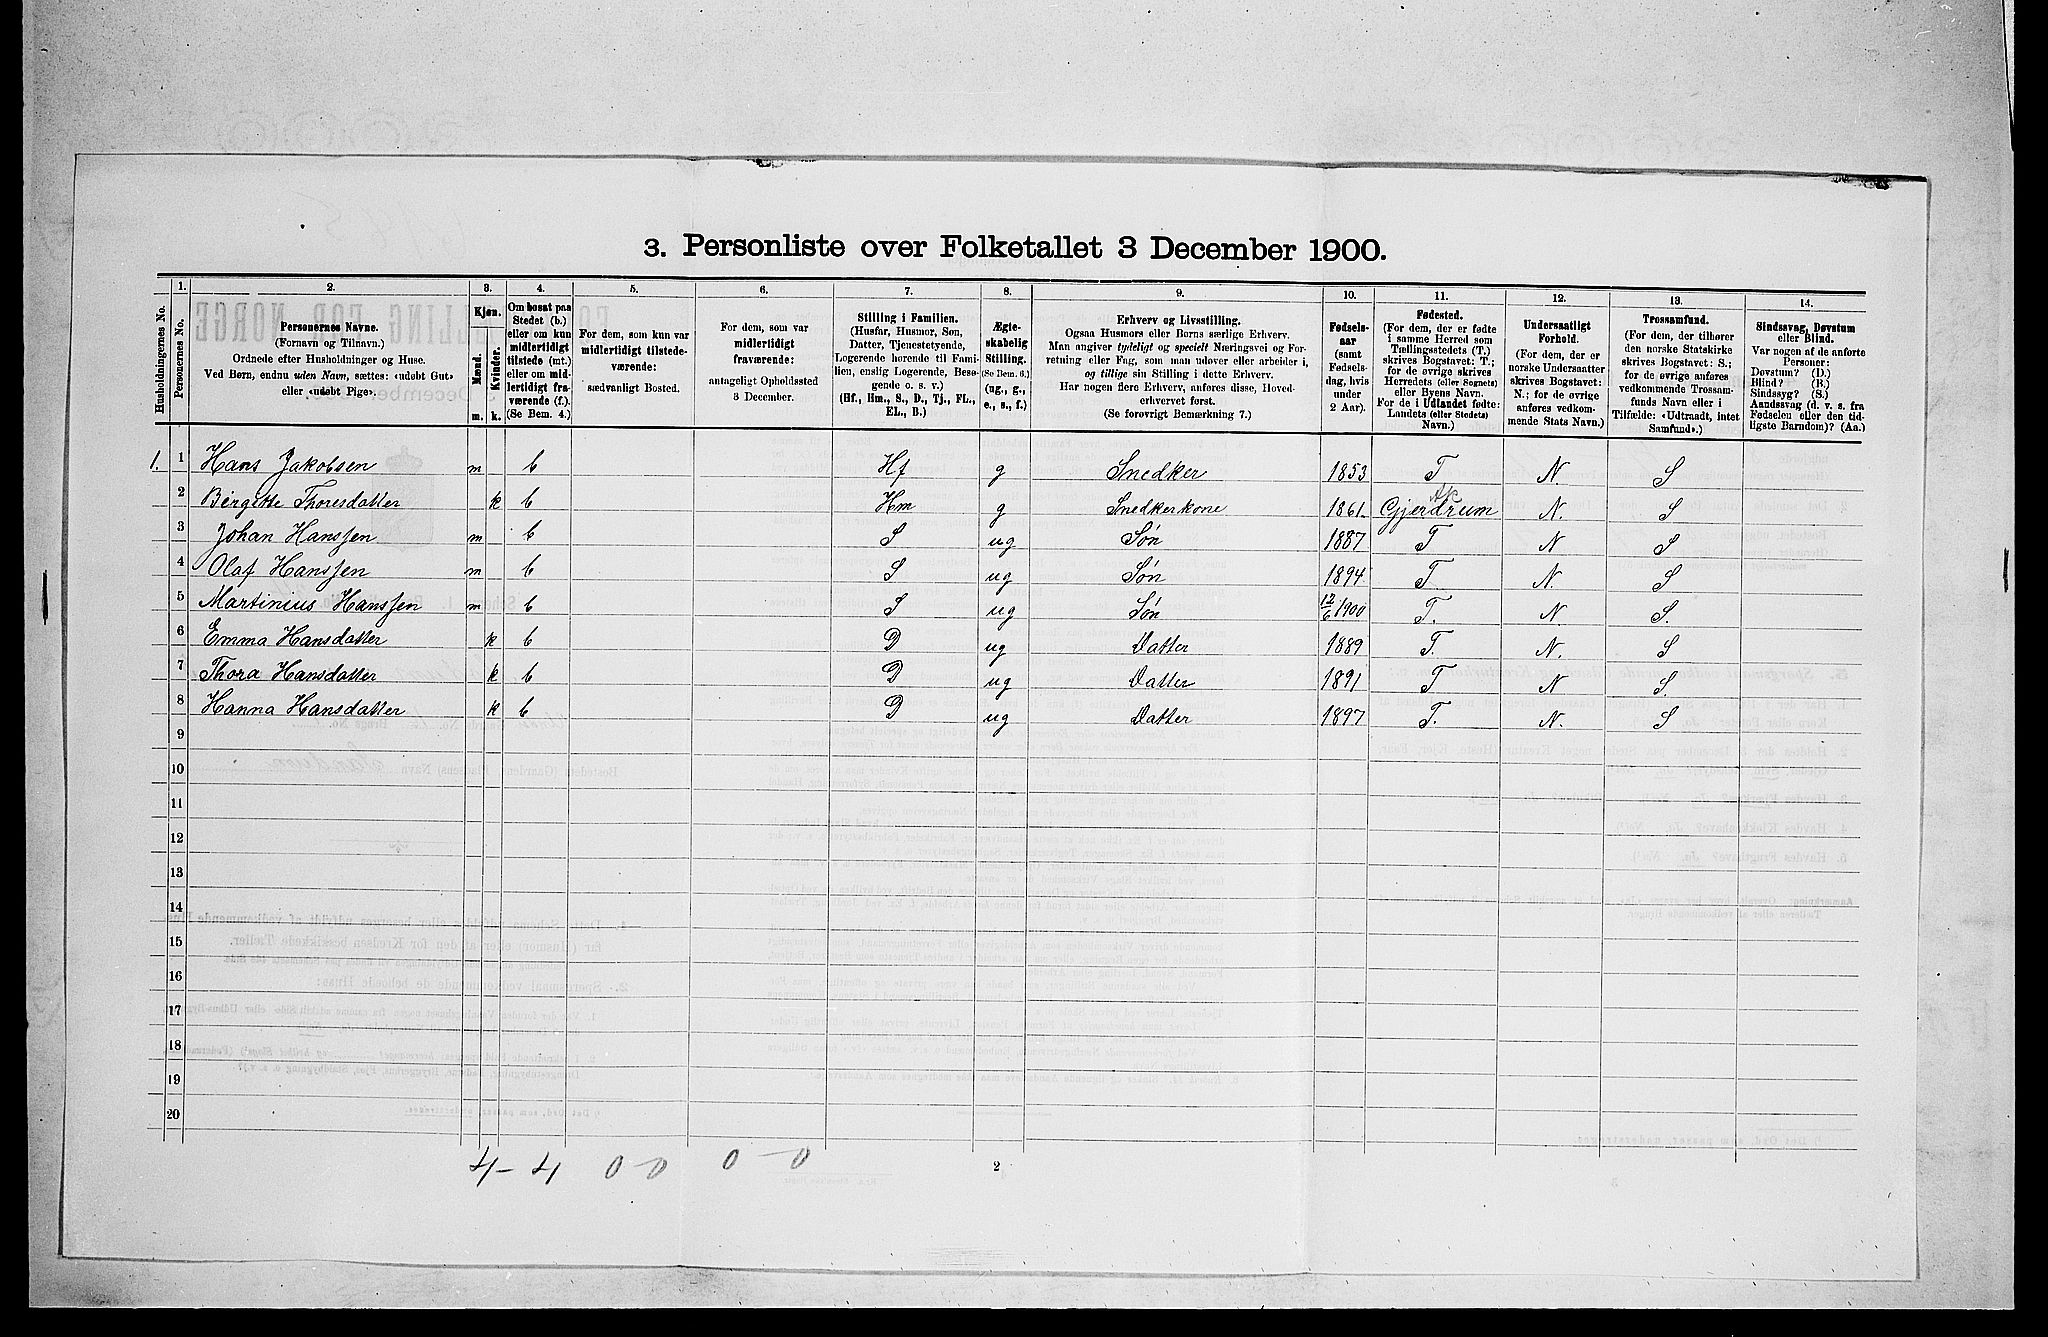 3. Personliste over Folketallet 3 December 1900.
Husholdningernes No.
1.
Personernes No.
2.
Personernes Navne.
(Fornavn og Tilnavn.)
Ordnede efter Husholdninger og Huse.
Ved Børn, endnu uden Navn, sættes: «udøbt Gut»
eller «udøbt Pige».
3.
Kjøn.
Mænd.
Kvinder.
m.
k.
4.
Om bosat paa
Stedet (b.)
eller om kun
midlertidigt
tilstede (mt.)
eller om mid-
lertidigt fra-
værende (f.).
(Se Bem. 4.)
5.
For dem, som kun var
midlertidigt tilstede-
værende:
sædvanligt Bosted.
6.
For dem, som var
midlertidigt
fraværende:
antageligt Opholdssted
3 December.
7.
Stilling i Familien.
(Husfar, Husmor, Søn,
Datter, Tjenestetyende,
Logerende hørende til Fami-
lien, enslig Logerende, Besø-
gende o. s. v.)
(Hf., Hm., S., D., Tj., FL.,
EL., B.)
8.
Ægte-
skabelig
Stilling.
(Se Bem. 6.)
(ug., g.,
e., s., f.)
9.
Erhverv og Livsstilling.
Ogsaa Husmors eller Børns særlige Erhverv.
Man angiver tydeligt og specielt Næringsvei og For-
retning eller Fag, som man udøver eller arbeider i,
og tillige sin Stilling i dette Erhverv.
Har nogen flere Erhverv, anføres disse, Hoved-
erhvervet først.
(Se forøvrigt Bemærkning 7.)
10.
Fødsels-
aar
(samt
Fødsels-
dag, hvis
under
2 Aar).
11.
Fødested.
(For dem, der er fødte
i samme Herred som
Tællingsstedets (T.)
skrives Bogstavet: T.;
for de øvrige skrives
Herredets (eller Sognets)
eller Byens Navn.
For de i Udlandet fødte:
Landets (eller Stedets)
Navn.)
12.
Undersaatligt
Forhold.
(For dem, der er
norske Undersaatter
skrives Bogstavet:
N.; for de øvrige
anføres vedkom-
mende Stats Navn.)
13.
Trossamfund.
(For dem, der tilhører
den norske Statskirke
skrives Bogstavet: S.;
for de øvrige anføres
vedkommende Trossam-
funds Navn eller i
Tilfælde: «Udtraadt, intet
Samfund».)
14.
Sindssvag, Døvstum
eller Blind.
Var nogen af de anførte
Personer:
Døvstum? (D.)
Blind? (B.)
Sindssyg? (S.)
Aandssvag (d. v. s. fra
Fødselen eller den tid-
ligste Barndom)? (Aa.)
1. 1 Hans Jakobsen m b Hf g Snedker 1853 T N. S
2 Birgitte Thoresdatter k b Hm g Snedkerkone 1861. Gjerdrum Ak N. S
3 Johan Hanssen m b S ug Søn 1887 T N S
4 Olaf Hanssen m b S ug Søn 1894 T. N. S
5 Martinius Hanssen m b S ug Søn 12/6 1900 T. N. S.
6 Emma Hansdatter k b D ug Datter 1889 T. N. S
7 Thora Hansdatter k b D ug Datter 1891 T N S.
8 Hanna Hansdatter k b D ug Datter 1897 T. N. S
9
10
11
12
13
14
15
16
17
18
19
20
4 - 4 0 0 0 - 0
2